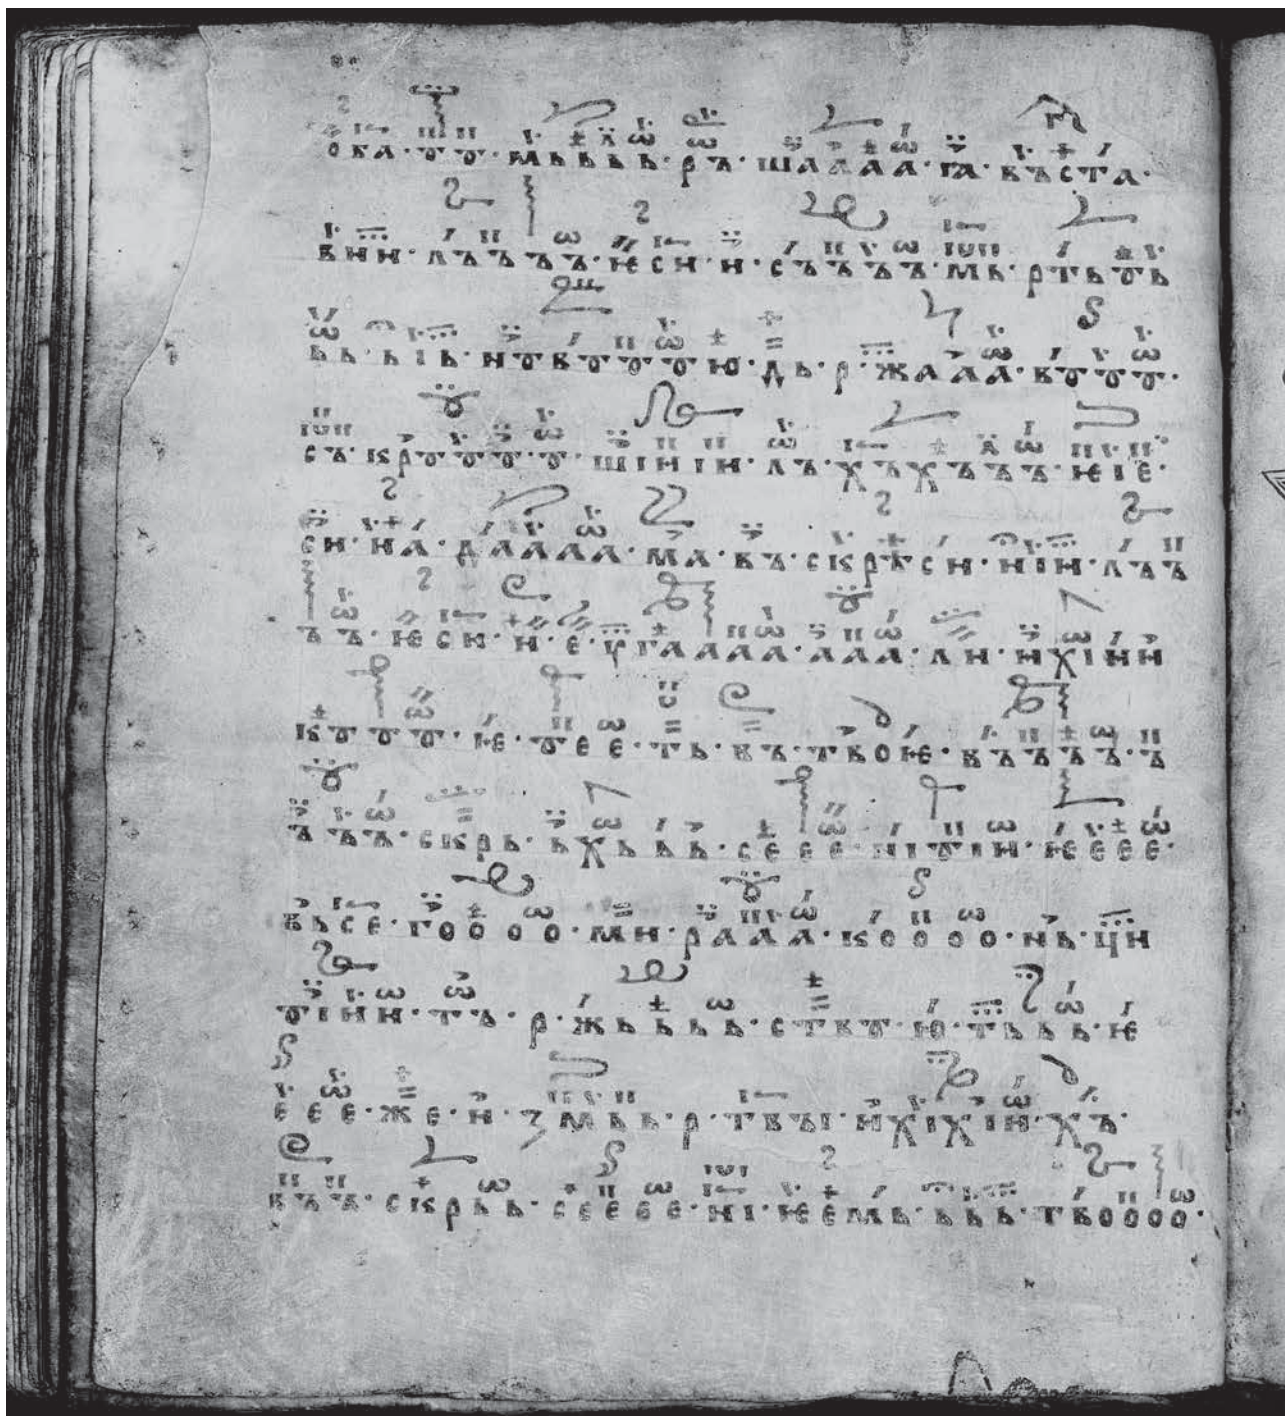 ока·ꙋꙋ·мьььь·ръ·шаааа·га·въста·
вии·лъъъъ·ѥси·и·съъъъ·мь·ртьꙋь
ьь·ьіь·нꙋвꙋꙋꙋю·дь·р·жааа·вꙋꙋꙋ·
съ·крꙋꙋꙋ·ꙋ·шіиіи·лъ·хъхъъъ·ѥіе·
си·на·даааа·ма·въ·скрьси·иіи·лъъ
ъъ·ѥси·и·е·ѵгаааа·ааа·ли·ихіии
кꙋꙋꙋ·ѥ·ꙋее·ть·въ·твоѥ·въъъъ·ъ
ъъъ·скрь·ьхььь·сеее·ніꙋіи·ѥеее·
вьсе·гоооо·ми·рааа·коооо·нь·ци
ꙋіии·тъ·р·жьььь·ствꙋ·ю·тььь·ѥ
еее·же·и·змьь·р·твъі·ихіхіи·хъ·
въъ·скрьь·сееее·ні·ѥемь·ььь·твоооо·